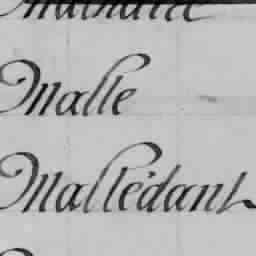 Malle
Mallédant